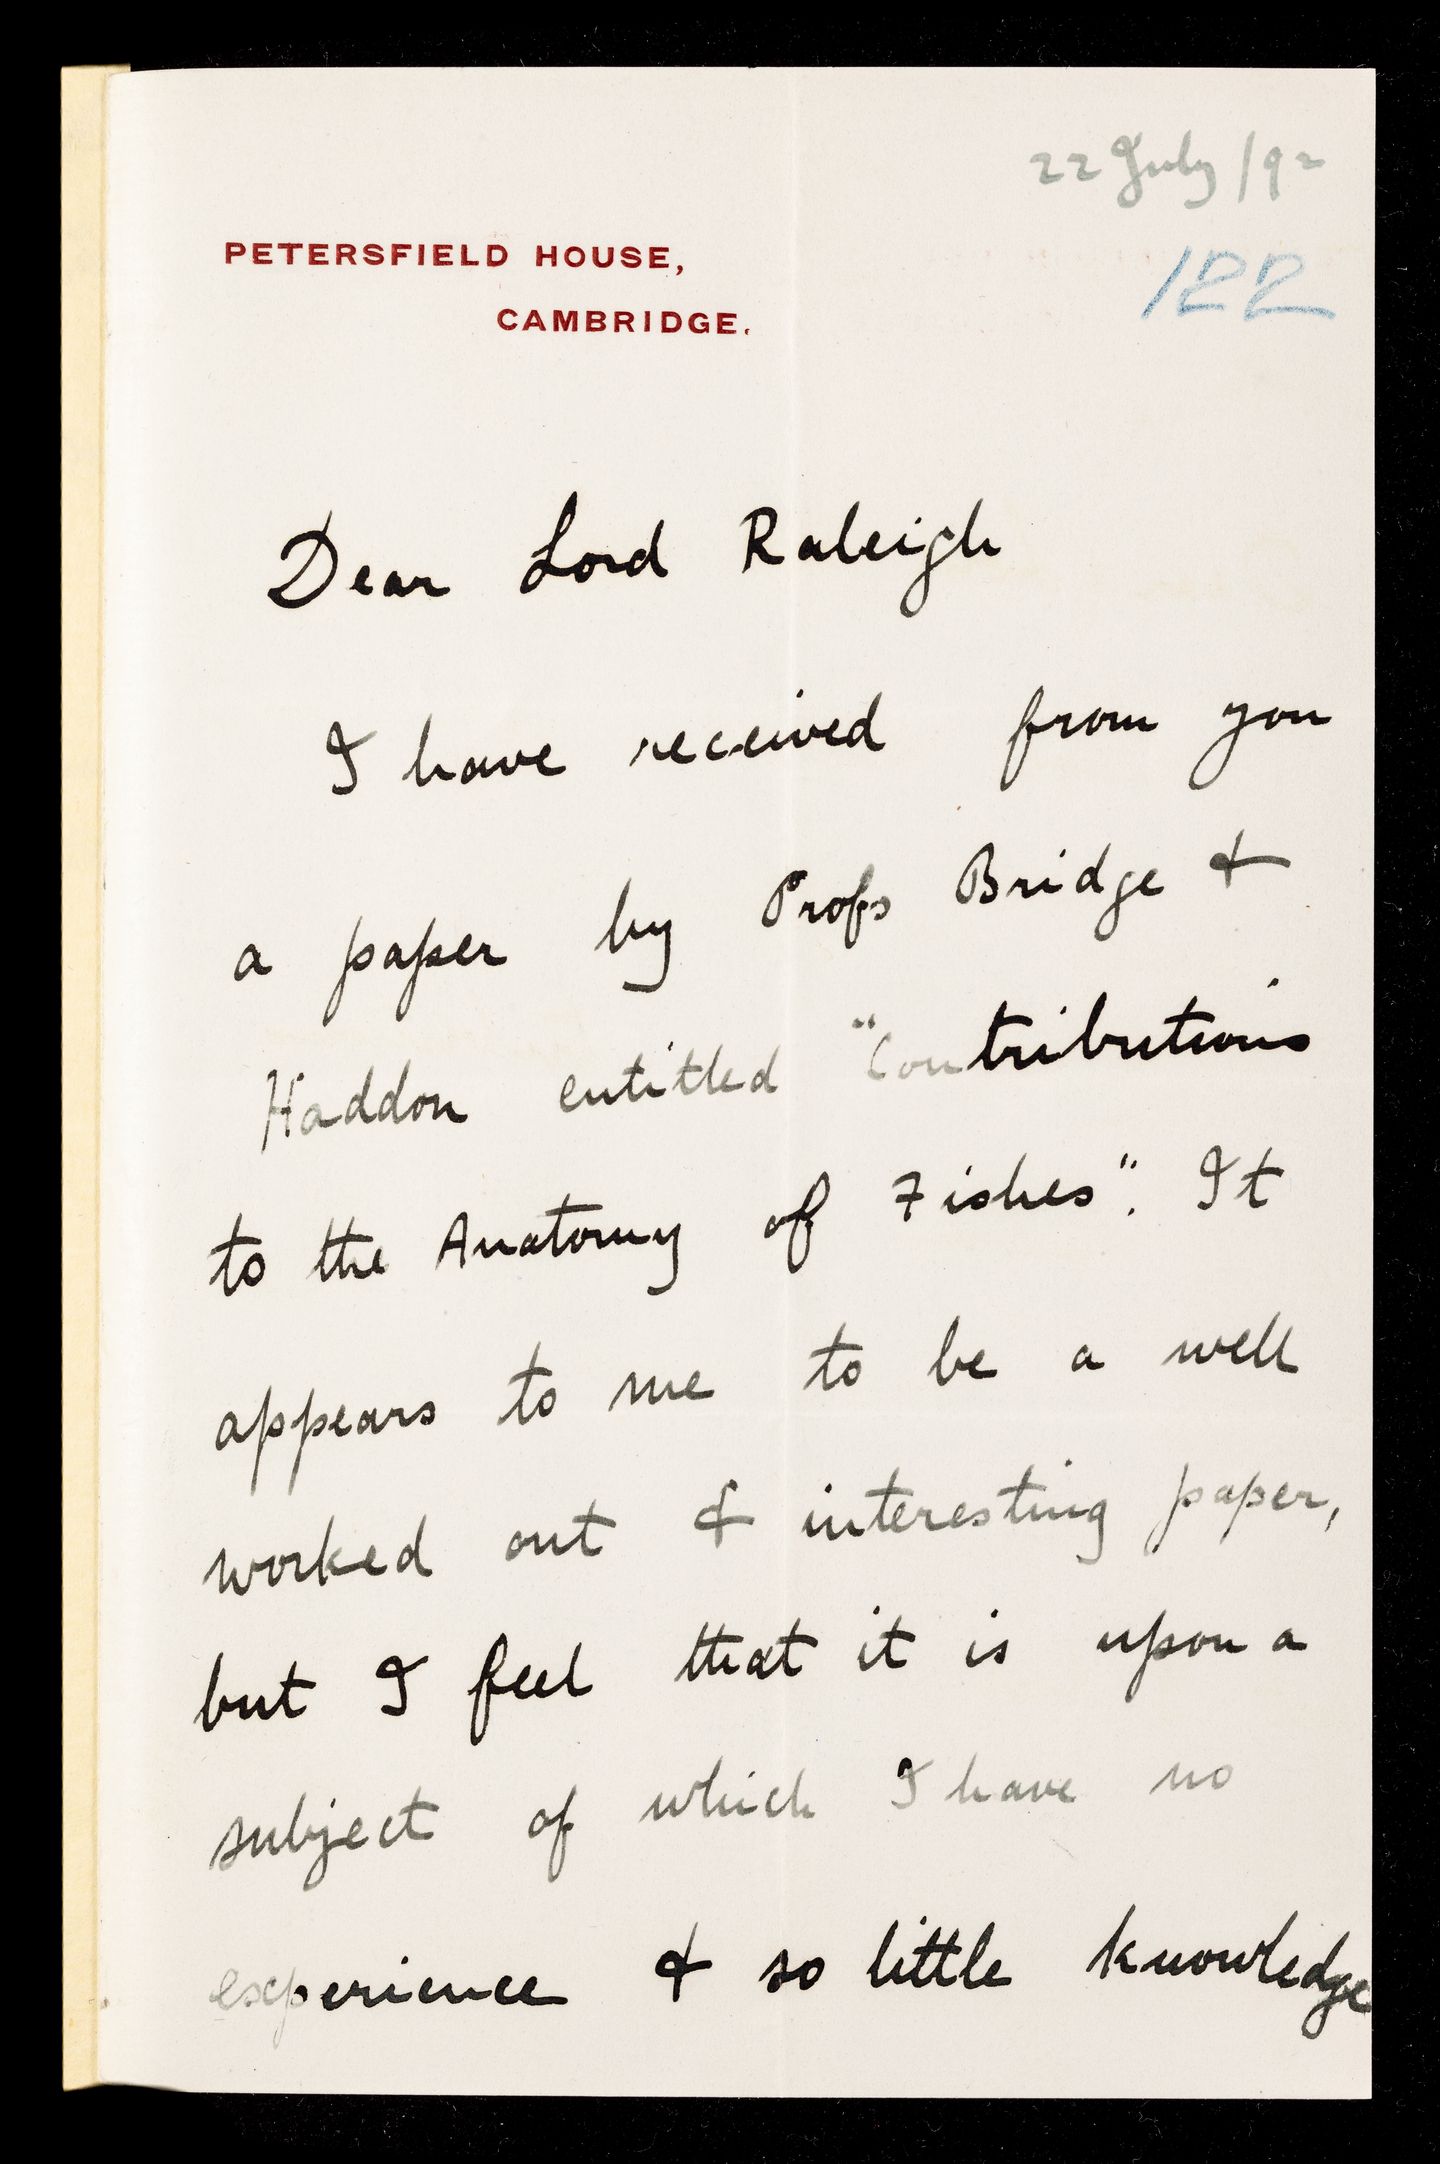 22 July /92
122
PETERSFIELD HOUSE,
CAMBRIDGE.
Dear Lord Raleigh
I have received from you
a paper by Profs Bridge &
Haddon entitled "Contributions
to the Anatomy of Fishes". It
appears to me to be a well
worked out & interesting paper,
but I feel that it is upon a
subject of which I have no
experience & so little knowledge